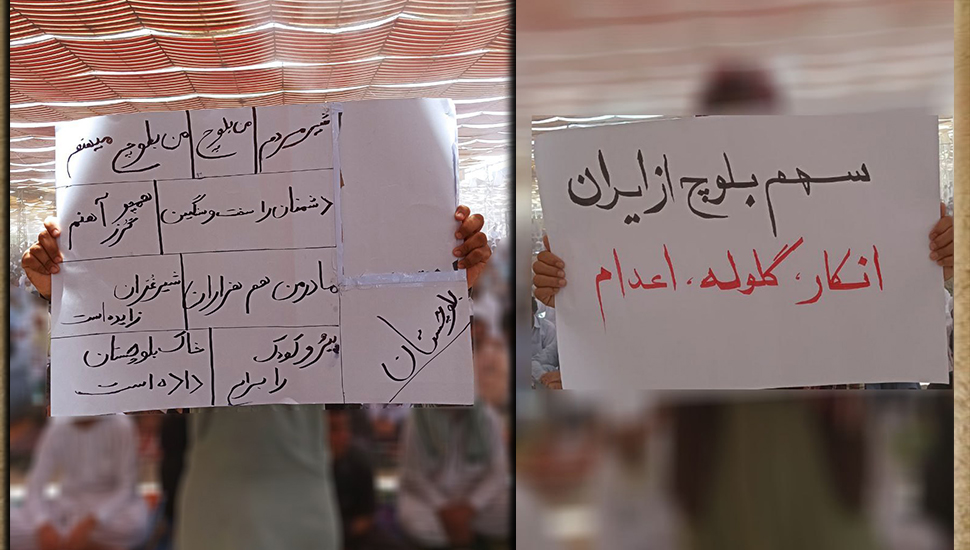 شیر مردم من بلوچ من بلوچ میهنم
دشمنان را سفت و سنگین همچو گرز آهنم
مادر من هم هزاران شیر غران
زایده است
پیر و کودک خاک بلوچستان
را برای داده است
بلوچستان
سهم بلوچ از ایران
انکار، گلوله، اعدام